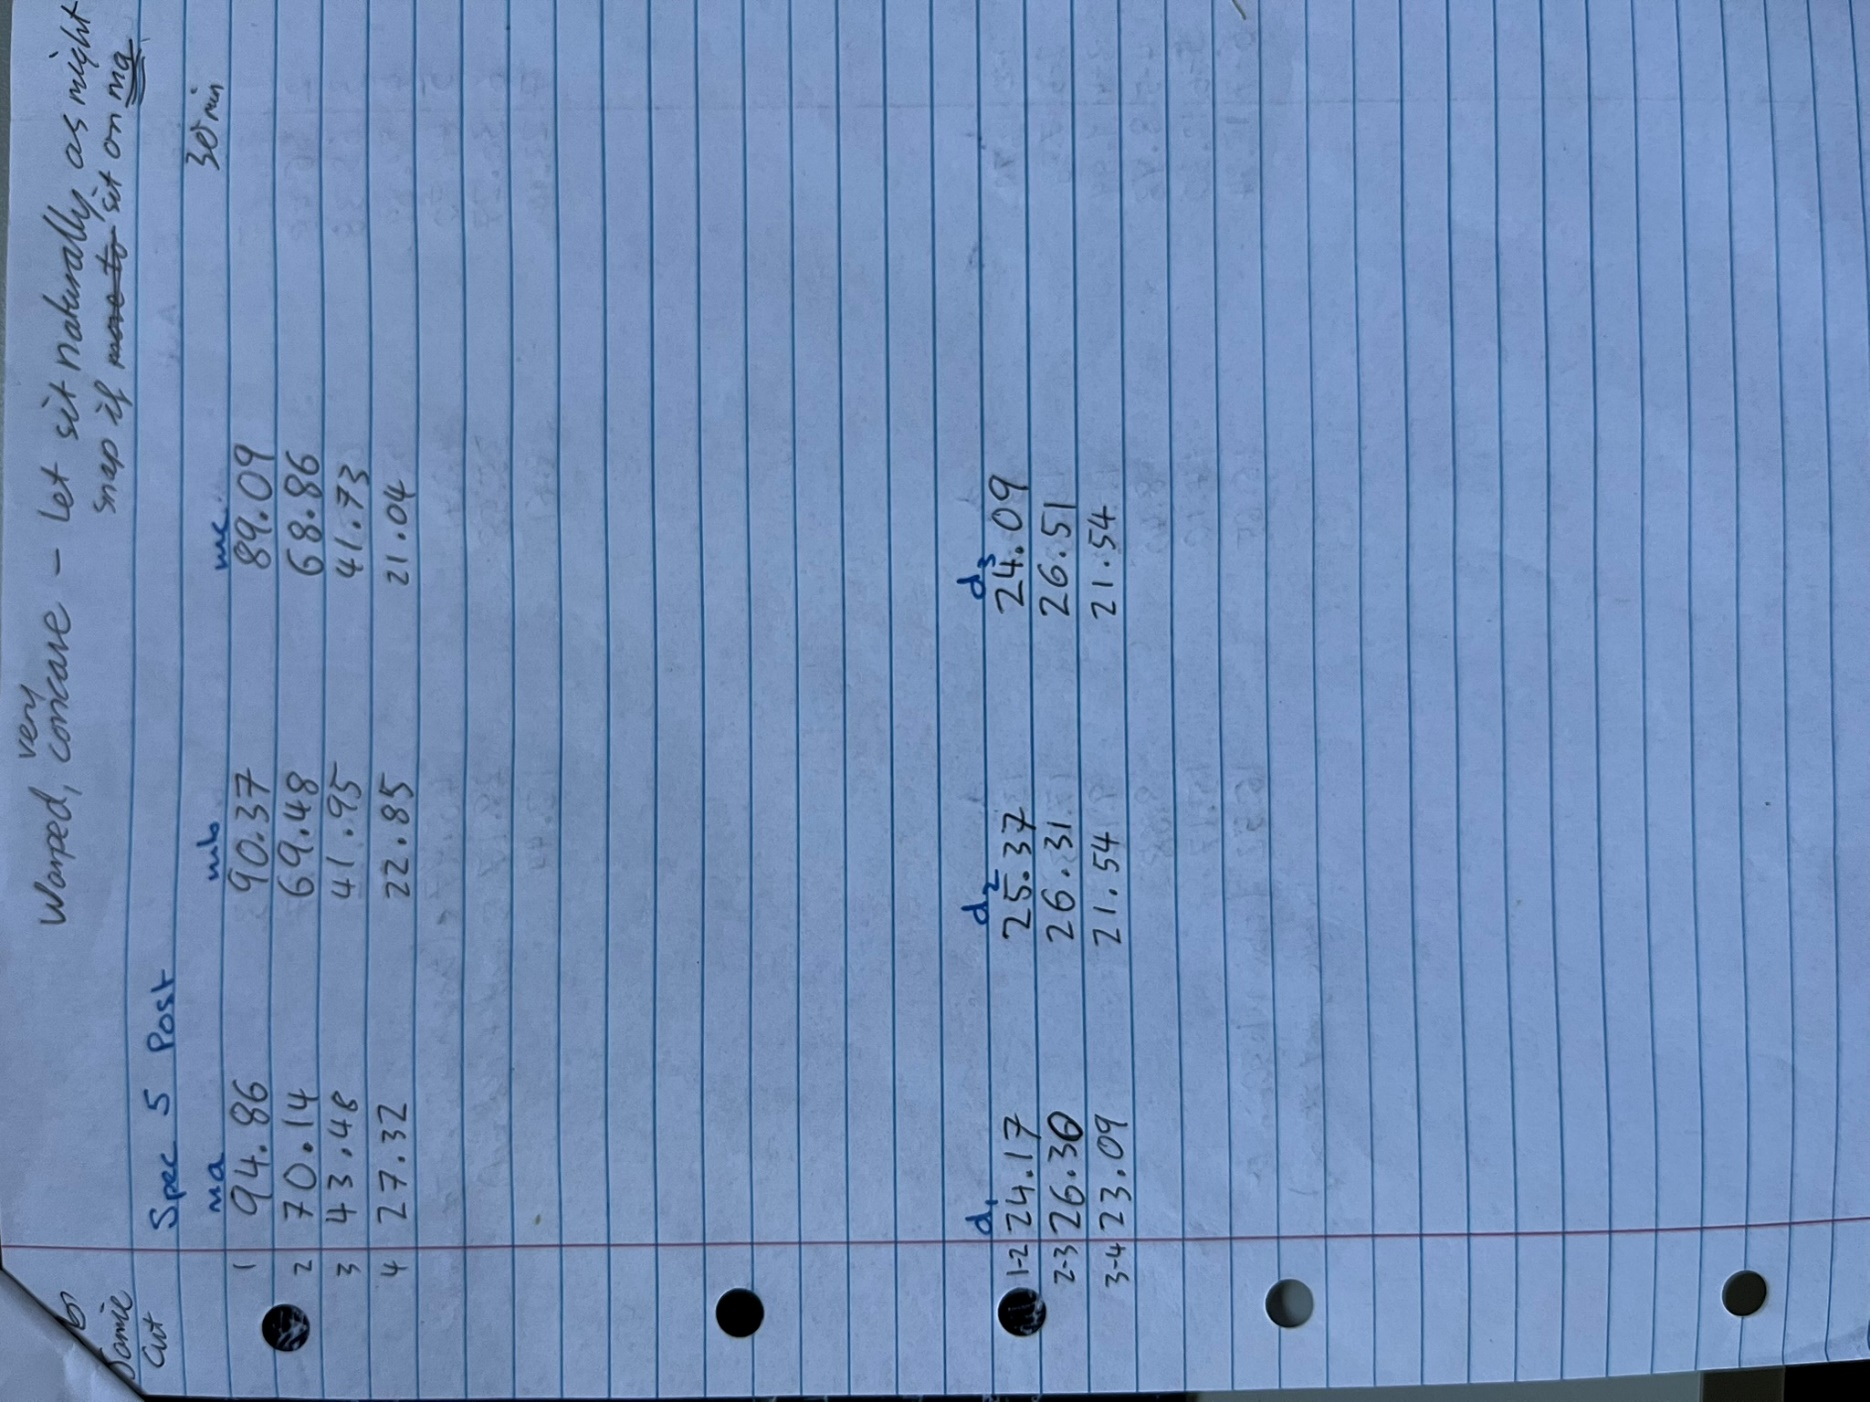 Warped, very concave - let sit naturally, as might
snap if sit on ma
Jamie
Cut
Spec 5 Post
30 min
ma mb mc
1 94.86 90.37 89.09
2 70.14 69.48 68.86
3 43.48 41.95 41.73
4 27.32 22.85 21.04
d1 d2 d3
1-2 24.17 25.37 24.09
2-3 26.30 26.31 26.51
3-4 23.09 21.54 21.54